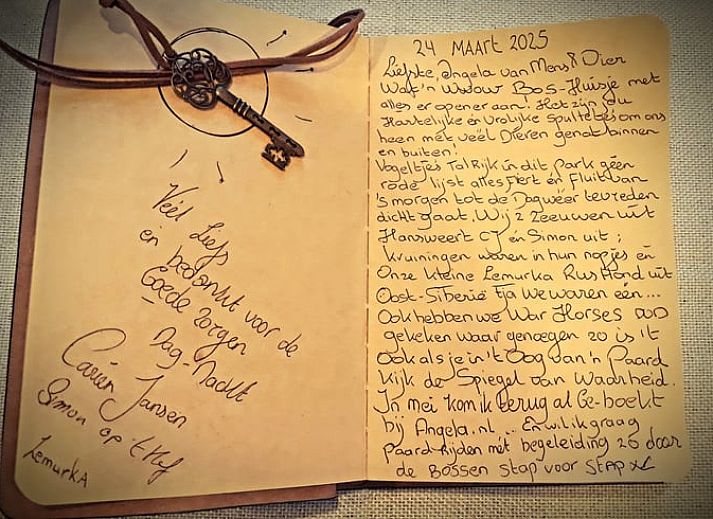 Veel Liefs
en bedankt voor de
Goede zorgen
Dag-Nacht
Cariën Jansen
Simon op 't Hof
Lemurka
24 MAART 2025
Liefste, Angela van Mens & Dier
Wat 'n Wwow Bos-Huisje met
alles er op en er aan! Het zijn du
Hartelijke en vrolijke spulletjes om ons
heen met veel Dieren genot binnen
en buiten!
Vogeltjes TalRijk in dit Park géén
rode lijst alles Fiert en Fluit van
's morgen tot de Dag weer tevreden
dicht gaat. Wij 2 Zeeuwen uit
Hansweert CJ én Simon uit ;
Kruiningen waren in hun nopjes én
Onze kleine Lemurka Rus Hond uit
Oost-Siberië Tja We waren één...
Ook hebben we War Horses DVD
gekeken waar genoegen zo is 't
Ook als je in 't Oog van 'n Paard
Kijk de Spiegel van Waarheid.
In mei kom ik terug al Ge-boekt
bij Angela.nl ... En wil ik graag
Paard-Rijden mét begeleiding zo door
de Bossen stap voor Stap